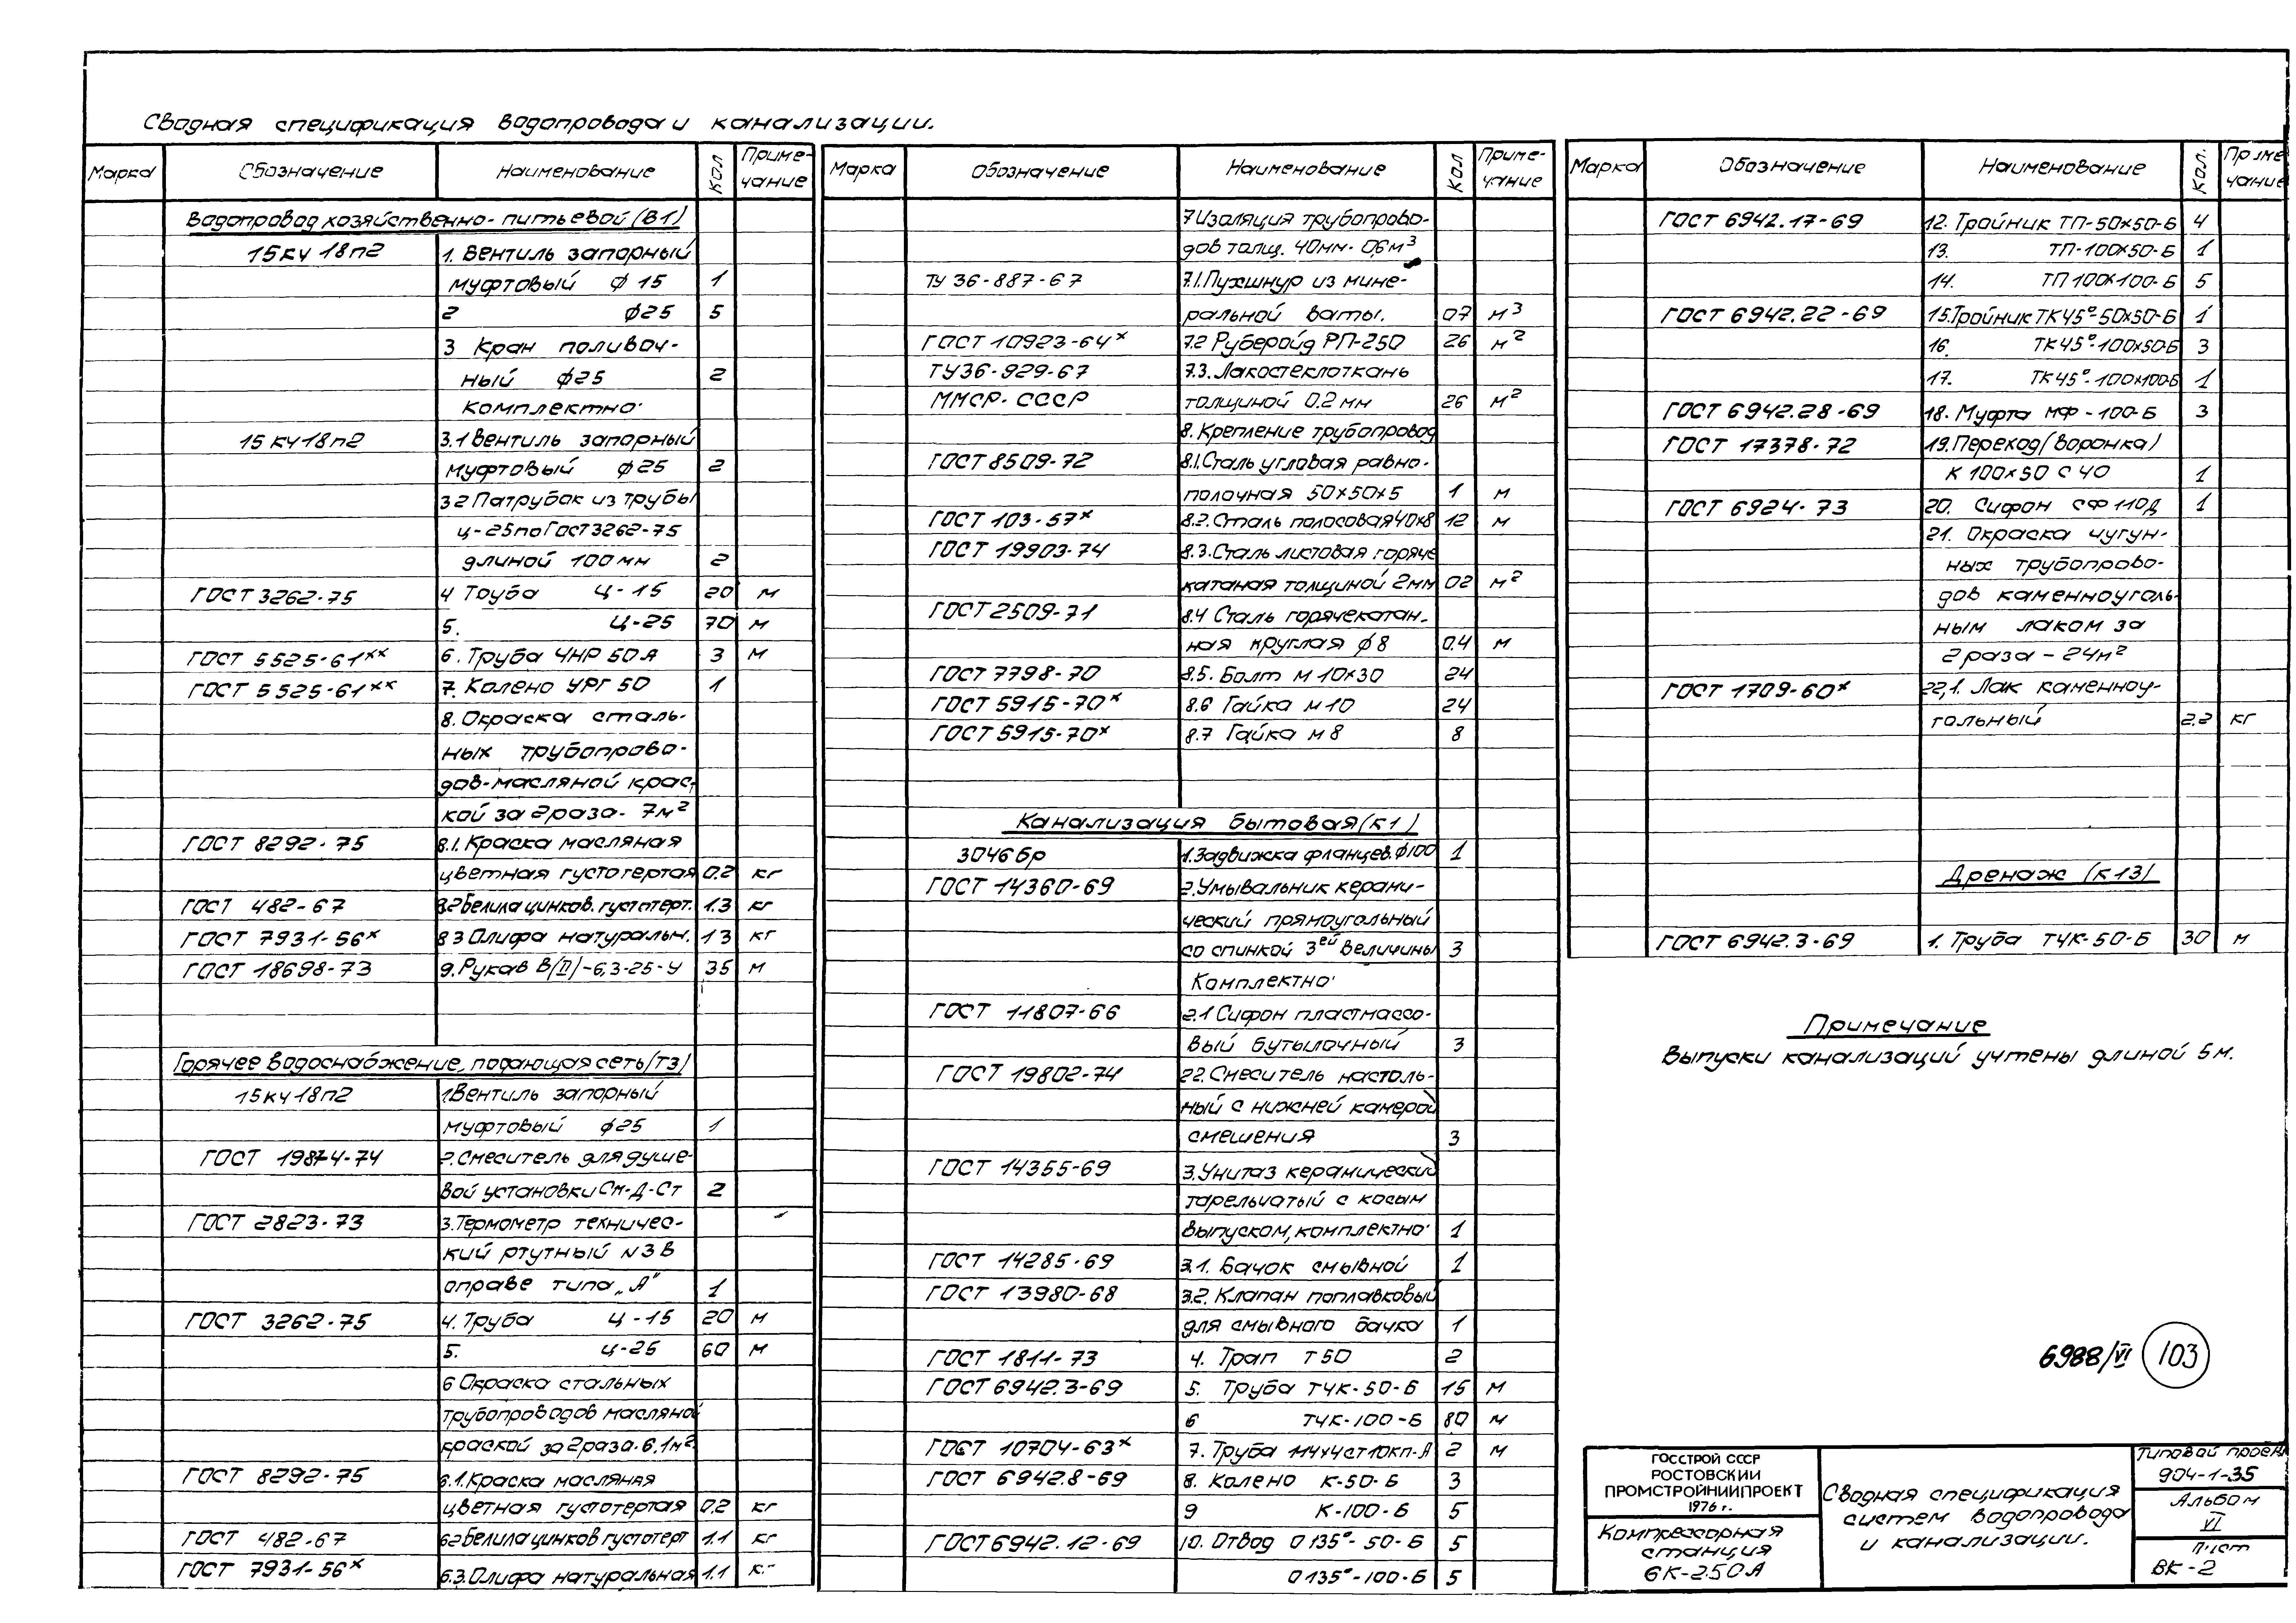 Сводная спецификация водопровода и канализации.
Марка Обозначение Наименование Кол Приме-
чание
Водопровод хозяйственно-питьевой (В1)
15кч 18п2 1. Вентиль запорный
муфтовый ϕ 15 1
2 ϕ25 5
3 Кран поливоч-
ный ϕ25 2
комплектно:
15кч18п2 3.1 Вентиль запорный
муфтовый ϕ25 2
3.2 Патрубок из трубы
ц-25 по Гост 3262-75
длиной 100 мм 2
ГОСТ 3262-75 4 Труба Ц-15 20 м
5. Ц-25 70 м
ГОСТ 5525-61ˣˣ 6. Труба ЧНР 50 А 3 м
ГОСТ 5525-61ˣˣ 7. Колено УРГ 50 1
8. Окраска сталь-
ных трубопрово-
дов-масляной крас-
кой за 2 раза - 7м²
ГОСТ 8292-75 8.1. Краска масляная
цветная густотертая 0.2 кг
ГОСТ 482-67 8.2 Белила цинков. густотерт. 1.3 кг
ГОСТ 7931-56ˣ 8.3 Олифа натуральн. 1.3 кг
ГОСТ 18698-73 9. Рукав В(II)-6,3-25-У 35 м
Горячее водоснабжение, подающая сеть (Т3)
15кч18п2 1 Вентиль запорный
муфтовый ϕ25 1
ГОСТ 19874-74 2. Смеситель для душе-
вой установки См-Д-Ст 2
ГОСТ 2823-73 3. Термометр техничес-
кий ртутный N3 в
оправе типа „А" 1
ГОСТ 3262-75 4. Труба Ц-15 20 м
5. ц-25 60 м
6 Окраска стальных
трубопроводов масляной
краской за 2 раза - 6.1м²
ГОСТ 8292-75 6.1. Краска масляная
цветная густотертая 0.2 кг
ГОСТ 482-67 6.2 Белила цинков густотерт 1.1 кг
ГОСТ 7931-56ˣ 6.3. Олифа натуральная 1.1 кг
Марка Обозначение Наименование Кол Приме-
чание
7 Изоляция трубопрово-
дов толщ. 40мм - 0,6 м³
ТУ 36-887-67 7.1. Пухшнур из мине-
ральной ваты. 0.7 м³
ГОСТ 10923-64ˣ 7.2 Рубероид РП-250 26 м²
ТУ36-929-67 7.3. Лакостеклоткань
ММСР. СССР толщиной 0.2 мм 26 м²
8. Крепление трубопровод
ГОСТ 8509-72 8.1. Сталь угловая равно-
полочная 50х50х5 1 м
ГОСТ 103-57ˣ 8.2. Сталь полосовая 40х8 12 м
ГОСТ 19903-74 8.3. Сталь листовая горяче
катаная толщиной 2мм 02 м²
ГОСТ 2509-71 8.4 Сталь горячекатан-
ная круглая ϕ 8 0.4 м
ГОСТ 7798-70 8.5. Болт М 10х30 24
ГОСТ 5915-70ˣ 8.6 Гайка М10 24
ГОСТ 5915-70ˣ 8.7 Гайка М8 8
Канализация бытовая (К1)
30ч6бр 1. Задвижка фланцев. ϕ100 1
ГОСТ 14360-69 2. Умывальник керами-
ческий прямоугольный
со спинкой 3ей величины 3
Комплектно:
ГОСТ 11807-66 2.1 Сифон пластмассо-
вый бутылочный 3
ГОСТ 19802-74 2.2. Смеситель настоль-
ный с нижней камерой
смешения 3
ГОСТ 14355-69 3. Унитаз керамический
тарельчатый с косым
выпуском, комплектно: 1
ГОСТ 14285-69 3.1. Бачок смывной 1
ГОСТ 13980-68 3.2. Клапан поплавковый
для смывного бачка 1
ГОСТ 1811-73 4. Трап Т50 2
ГОСТ 6942.3-69 5. Труба ТЧК-50-Б 15 м
6 ТЧК-100-Б 80 м
ГОСТ 10704-63ˣ 7. Труба 114х4ст10кп-А 2 м
ГОСТ 6942.8-69 8. Колено К-50-Б 3
9 К-100-Б 5
ГОСТ 6942.12-69 10. Отвод О 135°-50-Б 5
О 135°-100-Б 5
Марка Обозначение Наименование Кол. Приме
чание
ГОСТ 6942.17-69 12. Тройник ТП-50х50-Б 4
13. ТП-100х50-Б 1
14. ТП 100х100-Б 5
ГОСТ 6942.22-69 15. Тройник ТК45°-50х50-Б 1
16. ТК45°-100х50-Б 3
17. ТК45°-100х100-Б 1
ГОСТ 6942.28-69 18. Муфта МФ-100-Б 3
ГОСТ 17378-72 19. Переход (воронка)
К 100х50 С 40 1
ГОСТ 6924-73 20. Сифон СФ 110Д 1
21. Окраска чугун-
ных трубопрово-
дов каменноуголь-
ным лаком за
2 раза - 24м²
ГОСТ 1709-60ˣ 22,1. Лак каменноу-
гольный 2.2 кг
Дренаж (К13)
ГОСТ 6942.3-69 1. Труба ТЧК-50-Б 30 м
Примечание
Выпуски канализаций учтены длиной 5м.
6988/VI 103
ГОССТРОЙ СССР
РОСТОВСКИЙ
ПРОМСТРОЙНИИПРОЕКТ
1976 г.
Компрессорная
станция
6К-250А
Сводная спецификация
систем водопровода
и канализации.
Типовой проект
904-1-35
Альбом
VI
Лист
ВК-2